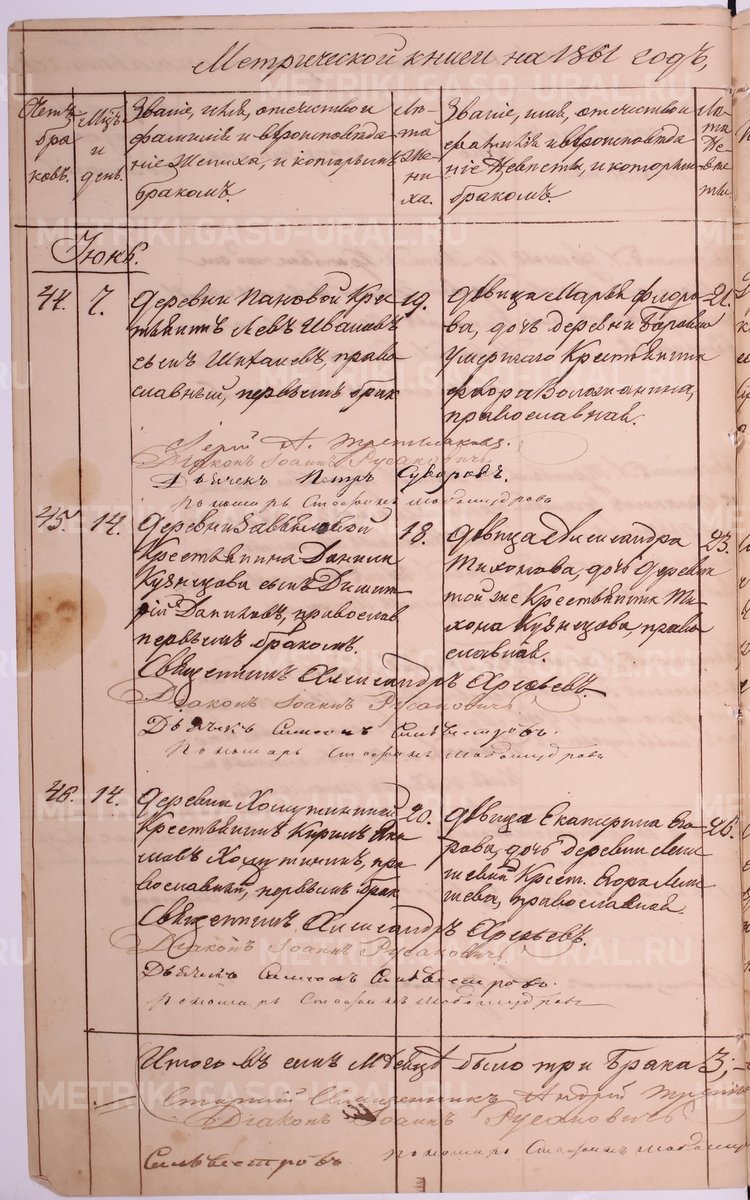 Метрической книги на 1861 годъ,
Счетъ браковъ.
Мцъ и день.
Званіе, имя, отчество и
фамилія и вѣроисповѣда
ніе жениха, и которымъ
бракомъ.
Лѣта жениха.
Званіе, имя, отчество и
фамилія и вѣроисповѣда
ніе невѣсты, и которымъ
бракомъ.
Лѣта невѣсты.
Іюнь.
44. 7.
Деревни Пановой Кре
стьянинъ Левъ Ивановъ
сынъ право
славный, первымъ брак
19.
Дѣвица Марья Федоро
ва, дочь деревни
умершаго Крестьянина
Федора Воложанина,
православная.
21.
Іерей А.
Діаконъ Іоаннъ Русановичъ
Дьячекъ Петръ Суворовъ.
Пономарь Стефанъ Любомудровъ
45. 14.
Деревни Завьяловой
Крестьянина Данила
Кузнецова сынъ Димит
рій Даниловъ, православ
первымъ бракомъ.
18.
Дѣвица Александра
Тихонова, дочь деревни
той же Крестьянина Ти
хона Кузнецова, право
славная.
23.
Священникъ Александръ Арефьевъ
Діаконъ Іоаннъ Русановичъ
Дьячекъ Симеонъ Сильвестровъ.
Пономарь Стефанъ Любомудровъ
46. 14.
Деревни Хомутининой
Крестьянинъ Кирилъ Яко
влевъ Хомутининъ, пра
вославный, первымъ брак
20.
Дѣвица Екатерина Его
рова, дочь деревни
Крест. Егора
православная
26.
Священникъ Александръ Арефьевъ.
Діаконъ Іоаннъ Русановичъ
Дьячекъ Симеонъ Сильвестровъ.
Пономарь Стефанъ Любомудровъ
Итого въ семъ Мѣсяцѣ было три брака 3;
Старшій Священникъ Андрей
Діаконъ Іоаннъ Русановичъ
Сильвестровъ
Пономарь Стефанъ Любомудровъ
METRIKI.GASO-URAL.RU